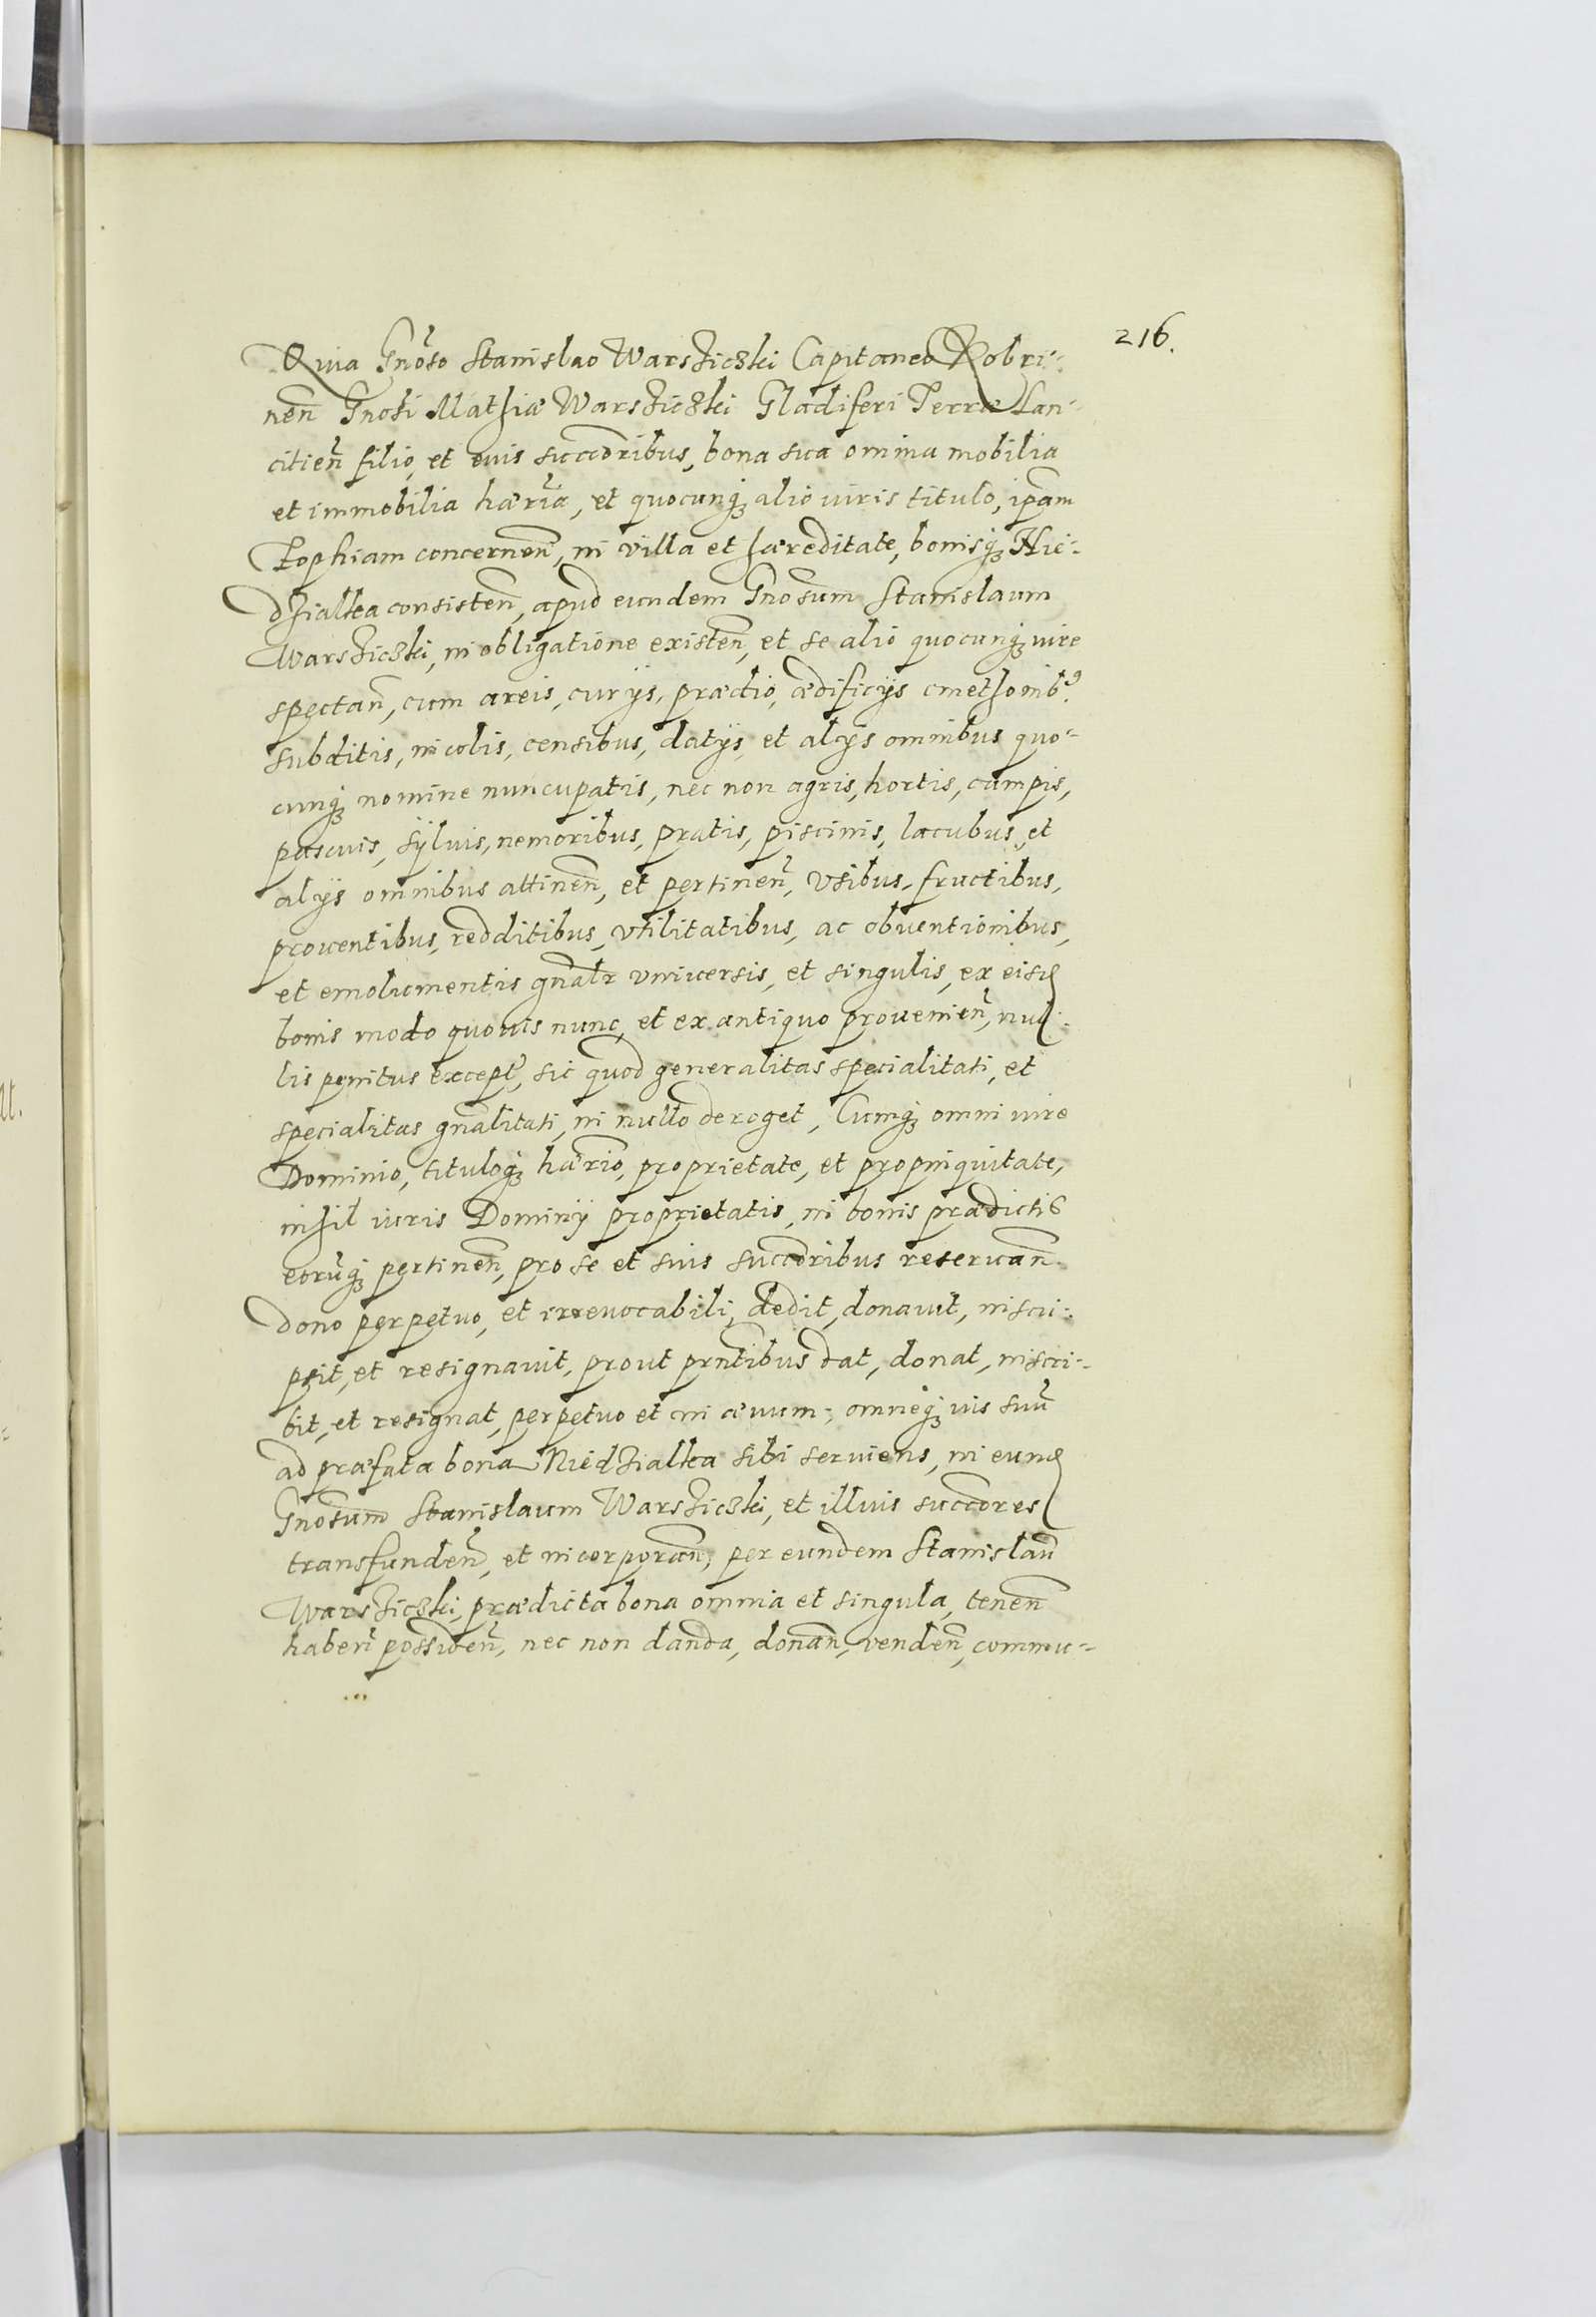 216.
Quia Gnoso Stanislao Warsziczki Capitaneo Kobri-
nen̄ Gnosi Mathiæ Warsziczki Gladiferi Terræ Lan-
citien̄ filio, et euis succōribus, bona sua omnia mobilia
et immobilia hæria, et quocunq; alio iuris titulo, ipam
Zophiam concernen̄, in villa et hæreditate, bonisq; Nie-
dzialka consisten̄, apud eundem Gnosum Stanislaum
Warsziczki, in obligatione existen̄, et se alio quocunq; iure
spectan̄, cum areis, curijs, prædio, ædificijs cmethonib9
subditis, incolis, censibus, datijs, et alijs omnibus quo-
cunq; nomine nuncupatis, nec non agris, hortis, campis,
pascuis, sÿluis, nemoribus, pratis, piscinis, lacubus, et
alijs omnibus attinen̄, et pertinen̄, vsibus, fructibus,
prouentibus, redditibus, vtilitatibus, ac obuentionibus,
et emolumentis gnalr vniuersis, et singulis, ex eisd
bonis modo quouis nunc, et ex antiquo prouenien̄, nul-
lis penitus except, sic quod generalitas specialitati, et
specialitas gnalitati, in nullo deroget, Cumq; omni iure
Dominio, tituloq; hærio, proprietate, et propinquitate,
nihil iuris Dominij proprietatis, in bonis prædictis
eorūq; pertinen̄, pro se et suis succōribus reseruan̄
dono perpetuo, et irreuocabili, dedit, donauit, inscri-
psit, et resignauit, prout prntibus dat, donat, inscri-
bit, et resignat, perpetuo et in æuum; omneq; ius suū
ad præfata bona Niedzialka sibi seruiens, in eund
Gnosum Stanislaum Warsziczki, et illius succōres
transfunden̄, et incorporan̄, per eundem Stanislaū
Warsziczki, prædicta bona omnia et singula, tenen̄
haben̄ possiden̄, nec non danda, donan̄, venden̄, commu-